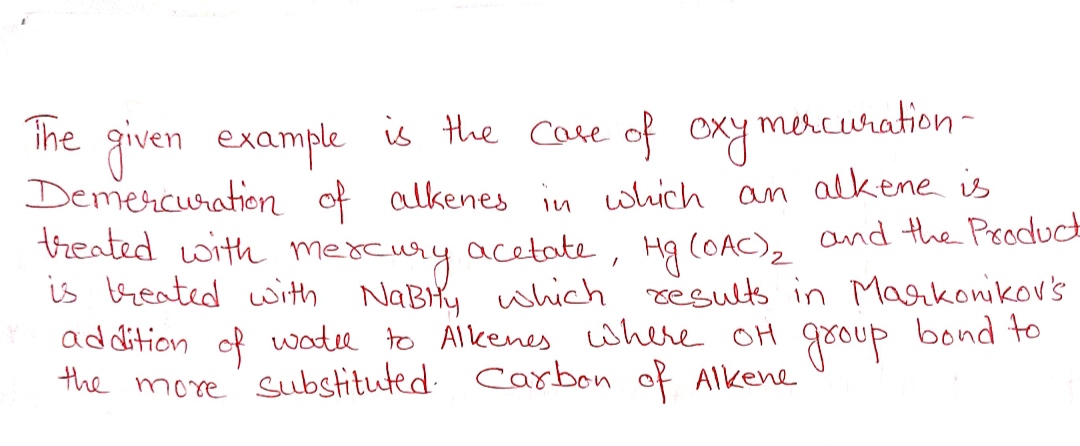 The given example is the case of oxymercuration-
Demercuration of alkenes in which an alkene is
treated with mercury acetate, Hg(OAC)₂ and the Product
is treated with NaBH₄ which results in Markonikov's
addition of water to Alkenes where OH group bond to
the more substituted. Carbon of Alkene